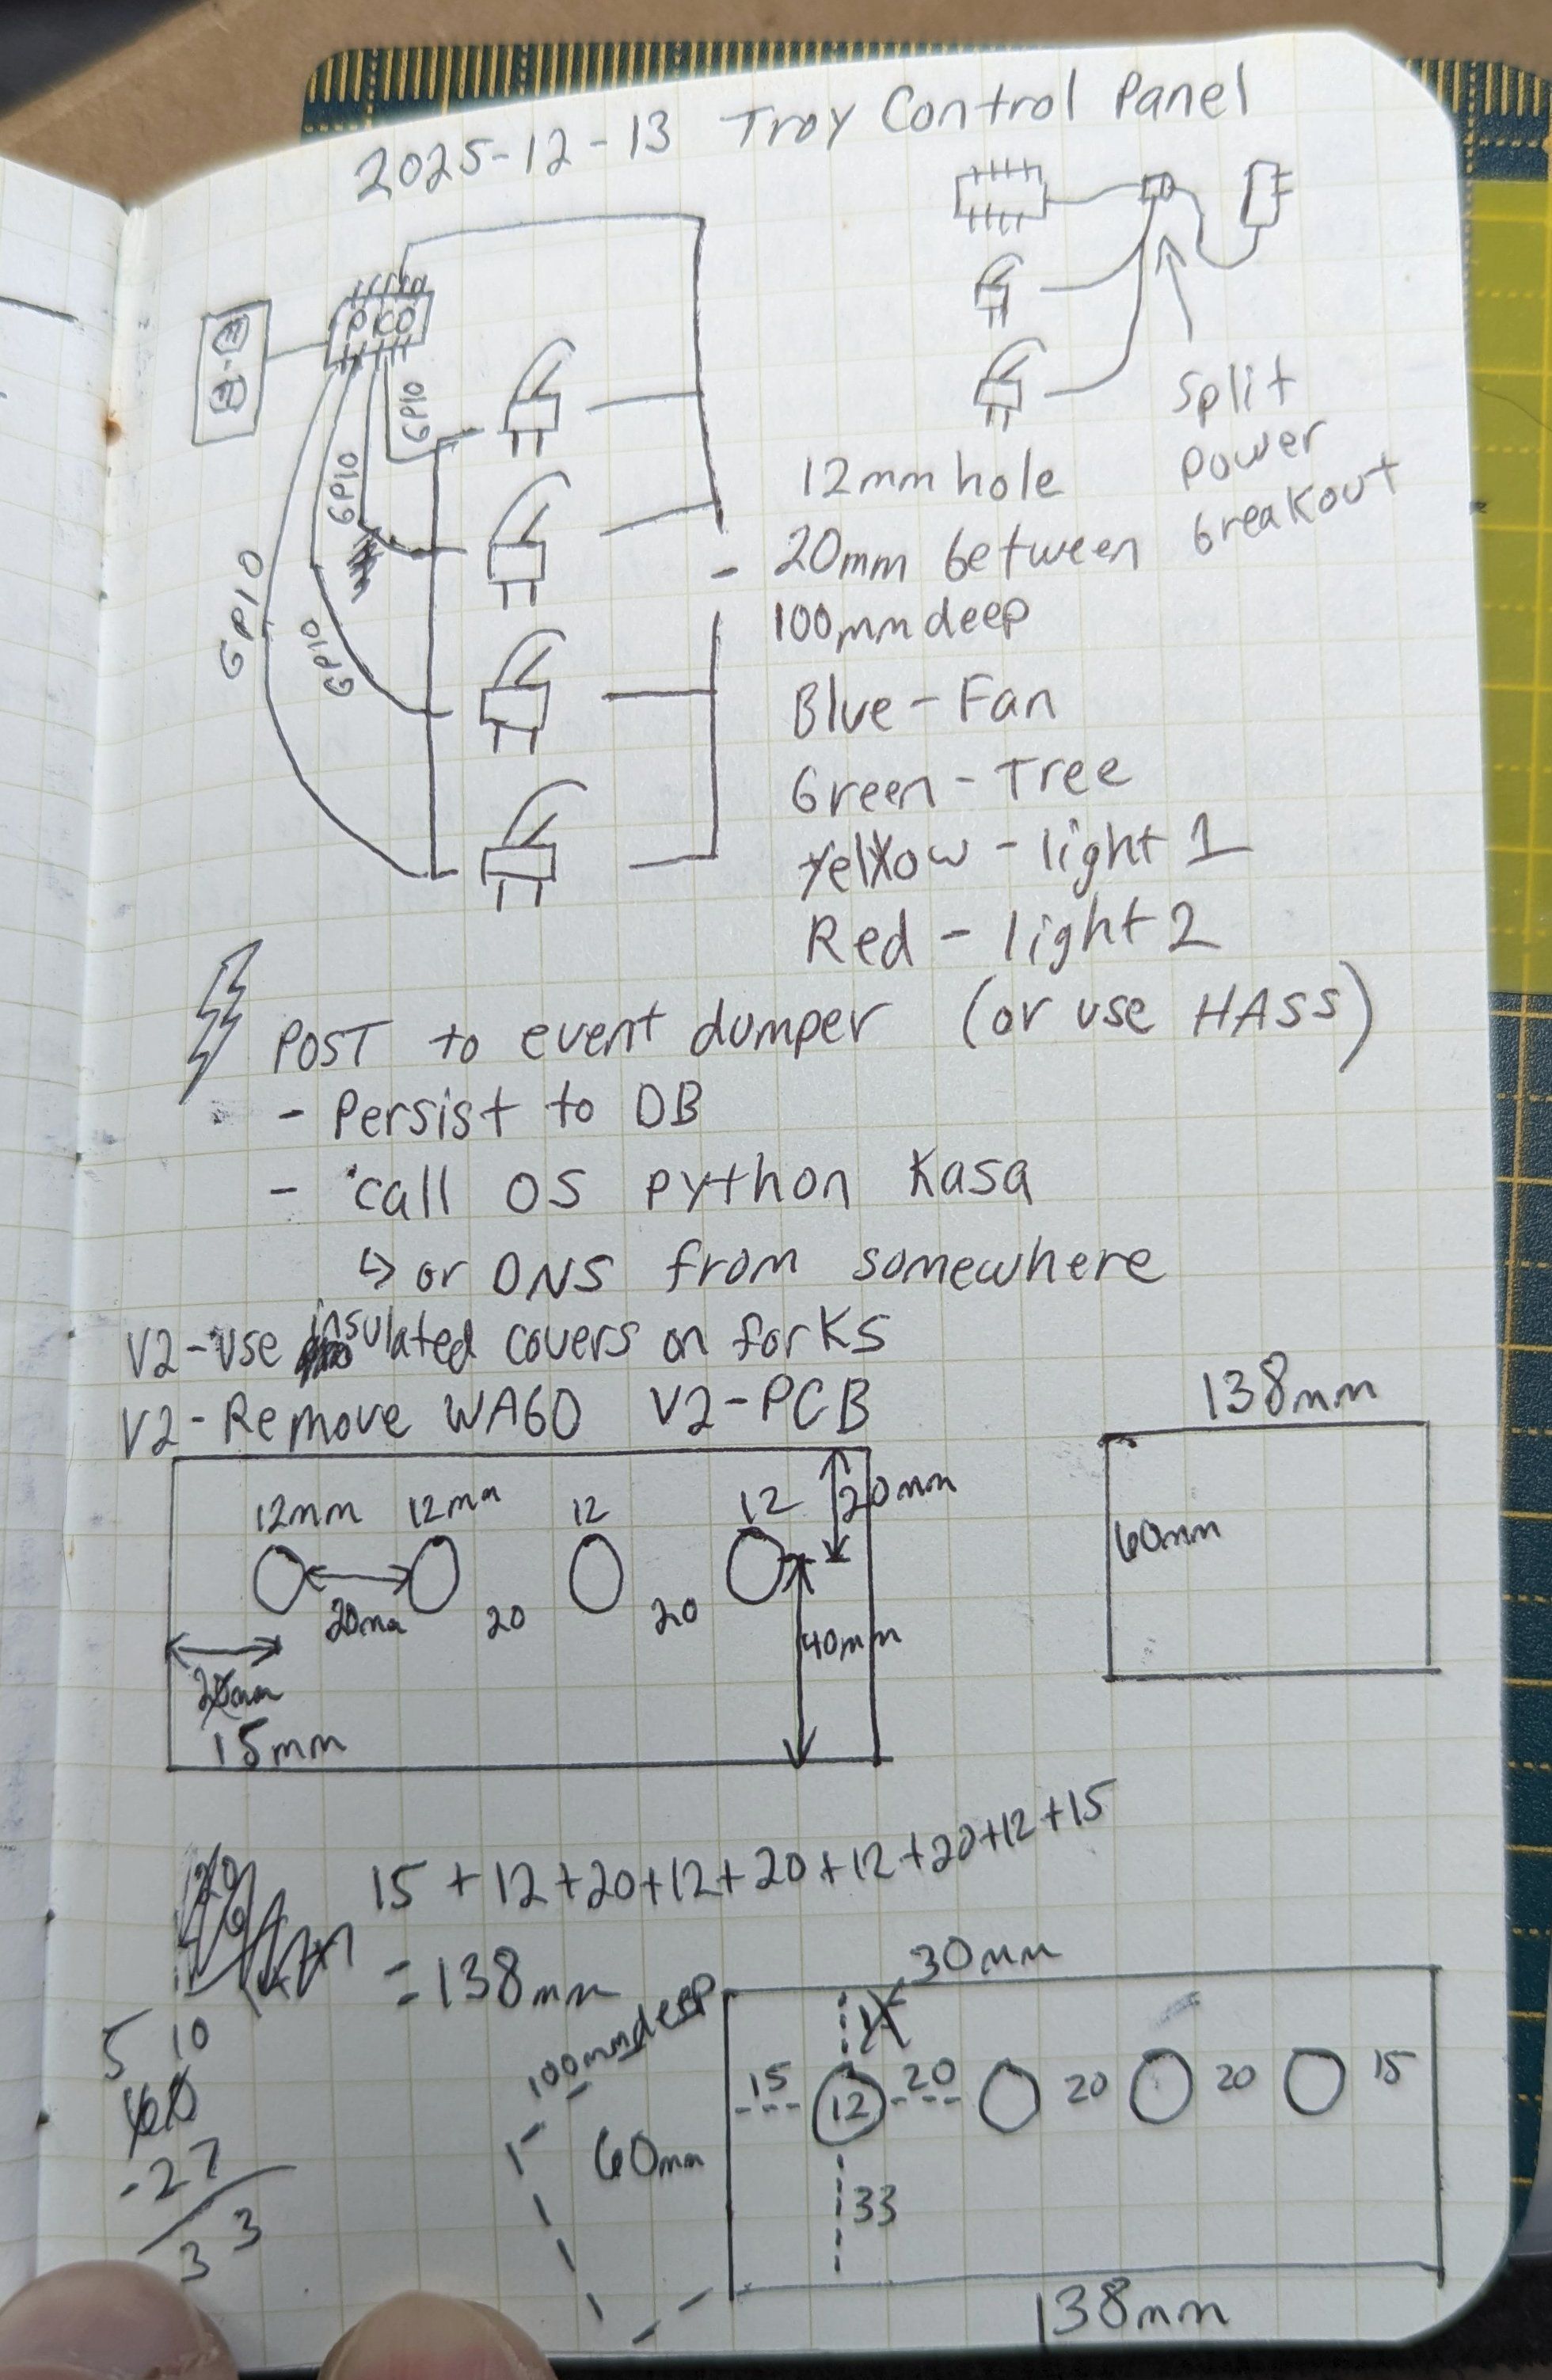 2025-12-13 Troy Control Panel
PICO
GPIO
GPIO
GPIO
GPIO
Split
power
breakout
12mm hole
- 20mm between
100mm deep
Blue - Fan
Green - Tree
Yellow - light 1
Red - light 2
POST to event dumper (or use HASS)
- Persist to DB
- call OS python Kasa
↳ or DNS from somewhere
V2-Use insulated covers on forks
V2-Remove WAGO V2-PCB
12mm 12mm 12 12
20mm
20mm 20 20
40mm
15mm
138mm
60mm
15+12+20+12+20+12+20+12+15
=138mm
5 10
60
-27
33
30mm
100mm deep
15 12 20 20 20 15
60mm
33
138mm